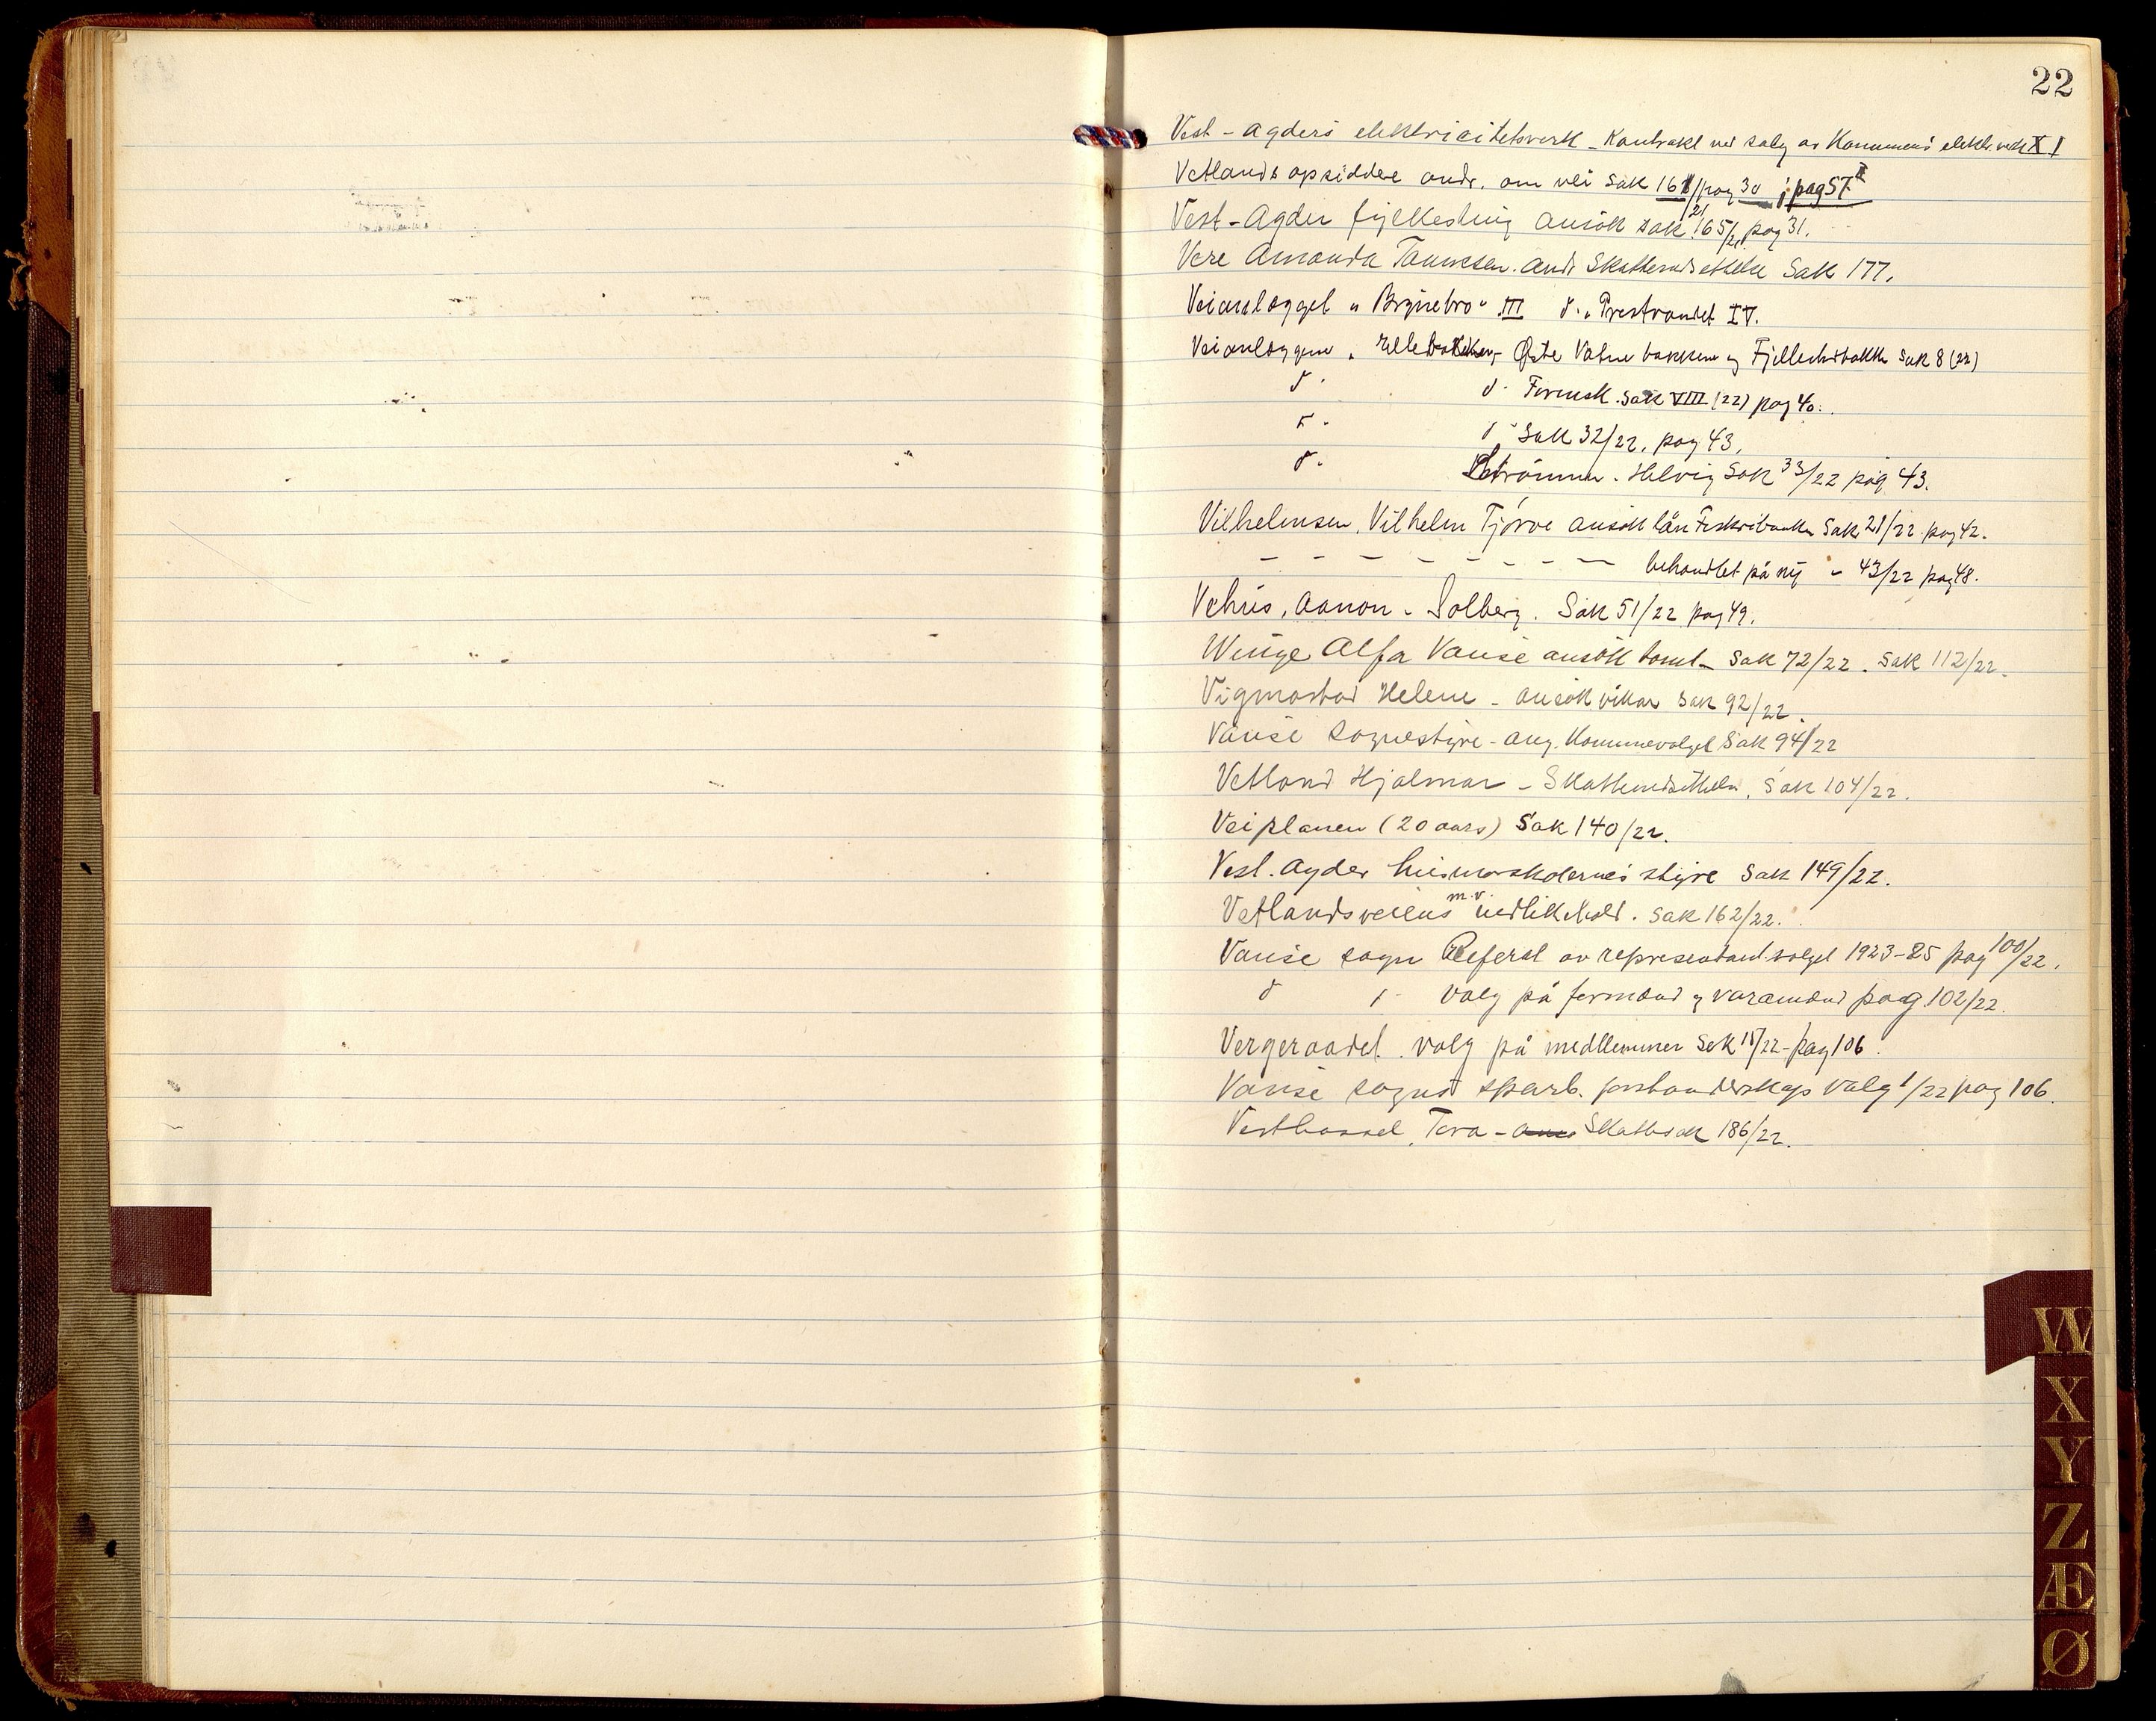 22
Vest-Agders elektricitetsverk - Kontrakt ved salg av Kommunens elektr. verk XI
Vetlands opsiddere andr. om vei Sak 161/21 pag 30 pag 57 II
Vest-Agder fylkesting ansök sak 165/21 pag 31.
Vere Amanda Tønnesen. and. Skattenedsettelse Sak 177.
Veianlægget "Brynebro" III d. " Prestvandet IV.
Veianlæggene " Ellebakken, Østre Vatne bakkene og Fjellestadbakke Sak 8 (22)
d. d. Formsk. sak VIII (22) pag 40.
d. d. Sak 32/22. pag 43.
d. Strömmen. Helvig Sak 33/22 pag 43.
Vilhelmsen, Vilhelm Tjörve ansök lån Fiskeribanken Sak 21/22 pag 42.
- - - - - - - - behandlet på ny " 43/22 pag 48.
Vehus, Aanon - Solberg. Sak 51/22 pag 49.
Winge Alfa Vanse ansök tomt - Sak 72/22. Sak 112/22.
Vigmostad Helene - ansök vikar Sak 92/22.
Vanse sognestyre - ang. Kommunevalget Sak 94/22
Vetland Hjalmar - Skattenedsettelse. Sak 104/22.
Veiplanen (20 aars) Sak 140/22.
Vest. Agder husmorskolernes styre Sak 149/22.
Vetlandsveiens m.v. vedlikehold. Sak 162/22.
Vanse sogn Referat av representantvalget 1923-25 pag 100/22.
d d. valg på formænd og varamænd pag 102/22.
Vergeraadet. valg på medlemmer Sek 18/22 - pag 106.
Vanse sogns sparb. forstanderskaps valg 1/22 pag 106.
Vesthassel, Tora - Skattesak 186/22.
W
X
Y
Z
Æ
Ø